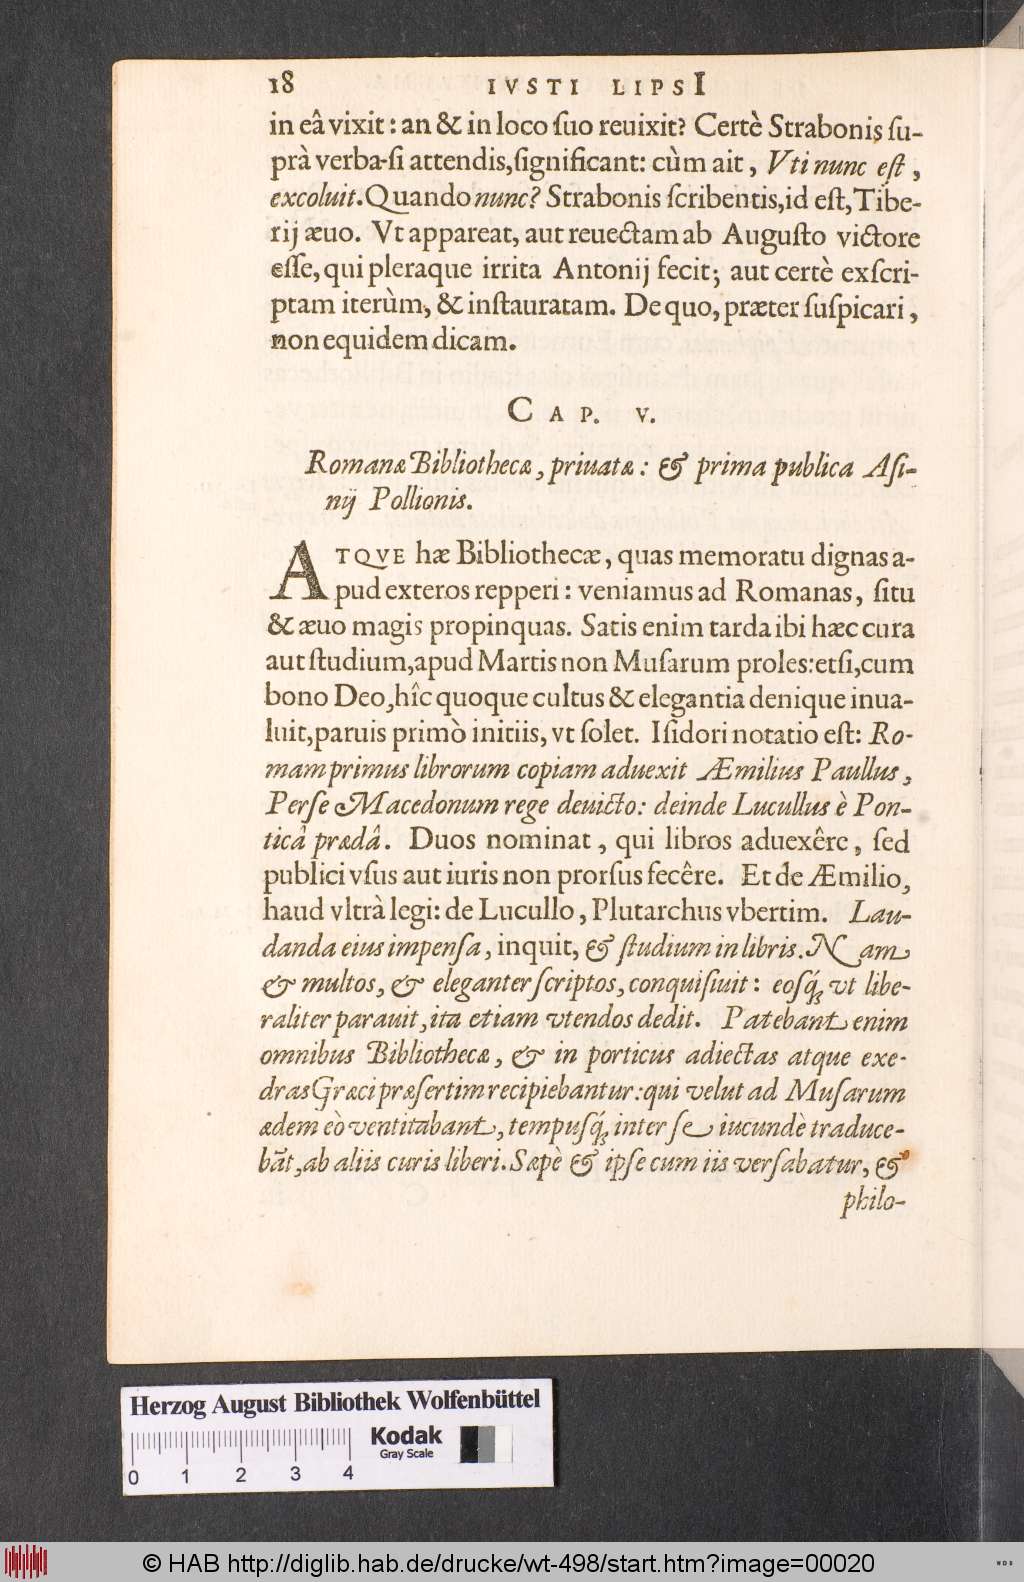 18 IVSTI LIPSI
in eâ vixit: an & in loco ſuo reuixit? Certè Strabonis ſu-
prà verba-ſi attendis, ſignificant: cùm ait, Vti nunc eſt,
excoluit. Quando nunc? Strabonis ſcribentis, id eſt, Tibe-
rij æuo. Vt appareat, aut reuectam ab Auguſto victore
eſſe, qui pleraque irrita Antonij fecit; aut certè exſcri-
ptam iterùm, & inſtauratam. De quo, præter ſuſpicari,
non equidem dicam.
CAP. V.
Romanæ Bibliothecæ, priuatæ: & prima publica Aſi-
nij Pollionis.
ATQVE hæ Bibliothecæ, quas memoratu dignas a-
pud exteros repperi: veniamus ad Romanas, ſitu
& æuo magis propinquas. Satis enim tarda ibi hæc cura
aut ſtudium, apud Martis non Muſarum proles: etſi, cum
bono Deo, hîc quoque cultus & elegantia denique inua-
luit, paruis primò initiis, vt ſolet. Iſidori notatio eſt: Ro-
mam primus librorum copiam aduexit Æmilius Paullus,
Perſe Macedonum rege deuicto: deinde Lucullus è Pon-
ticâ prædâ. Duos nominat, qui libros aduexêre, ſed
publici vſus aut iuris non prorſus fecêre. Et de Æmilio,
haud vltrà legi: de Lucullo, Plutarchus vbertim. Lau-
danda eius impenſa, inquit, & ſtudium in libris. Nam
& multos, & eleganter ſcriptos, conquiſiuit: eosq́; vt libe-
raliter parauit, ita etiam vtendos dedit. Patebant enim
omnibus Bibliothecæ, & in porticus adiectas atque exe-
dras Græci præſertim recipiebantur: qui velut ad Muſarum
ædem eò ventitabant, tempuſq́; inter ſe iucundè traduce-
bāt, ab aliis curis liberi. Sæpè & ipſe cum iis verſabatur, &
philo-
Herzog August Bibliothek Wolfenbüttel
Kodak
Gray Scale
0 1 2 3 4
© HAB http://diglib.hab.de/drucke/wt-498/start.htm?image=00020